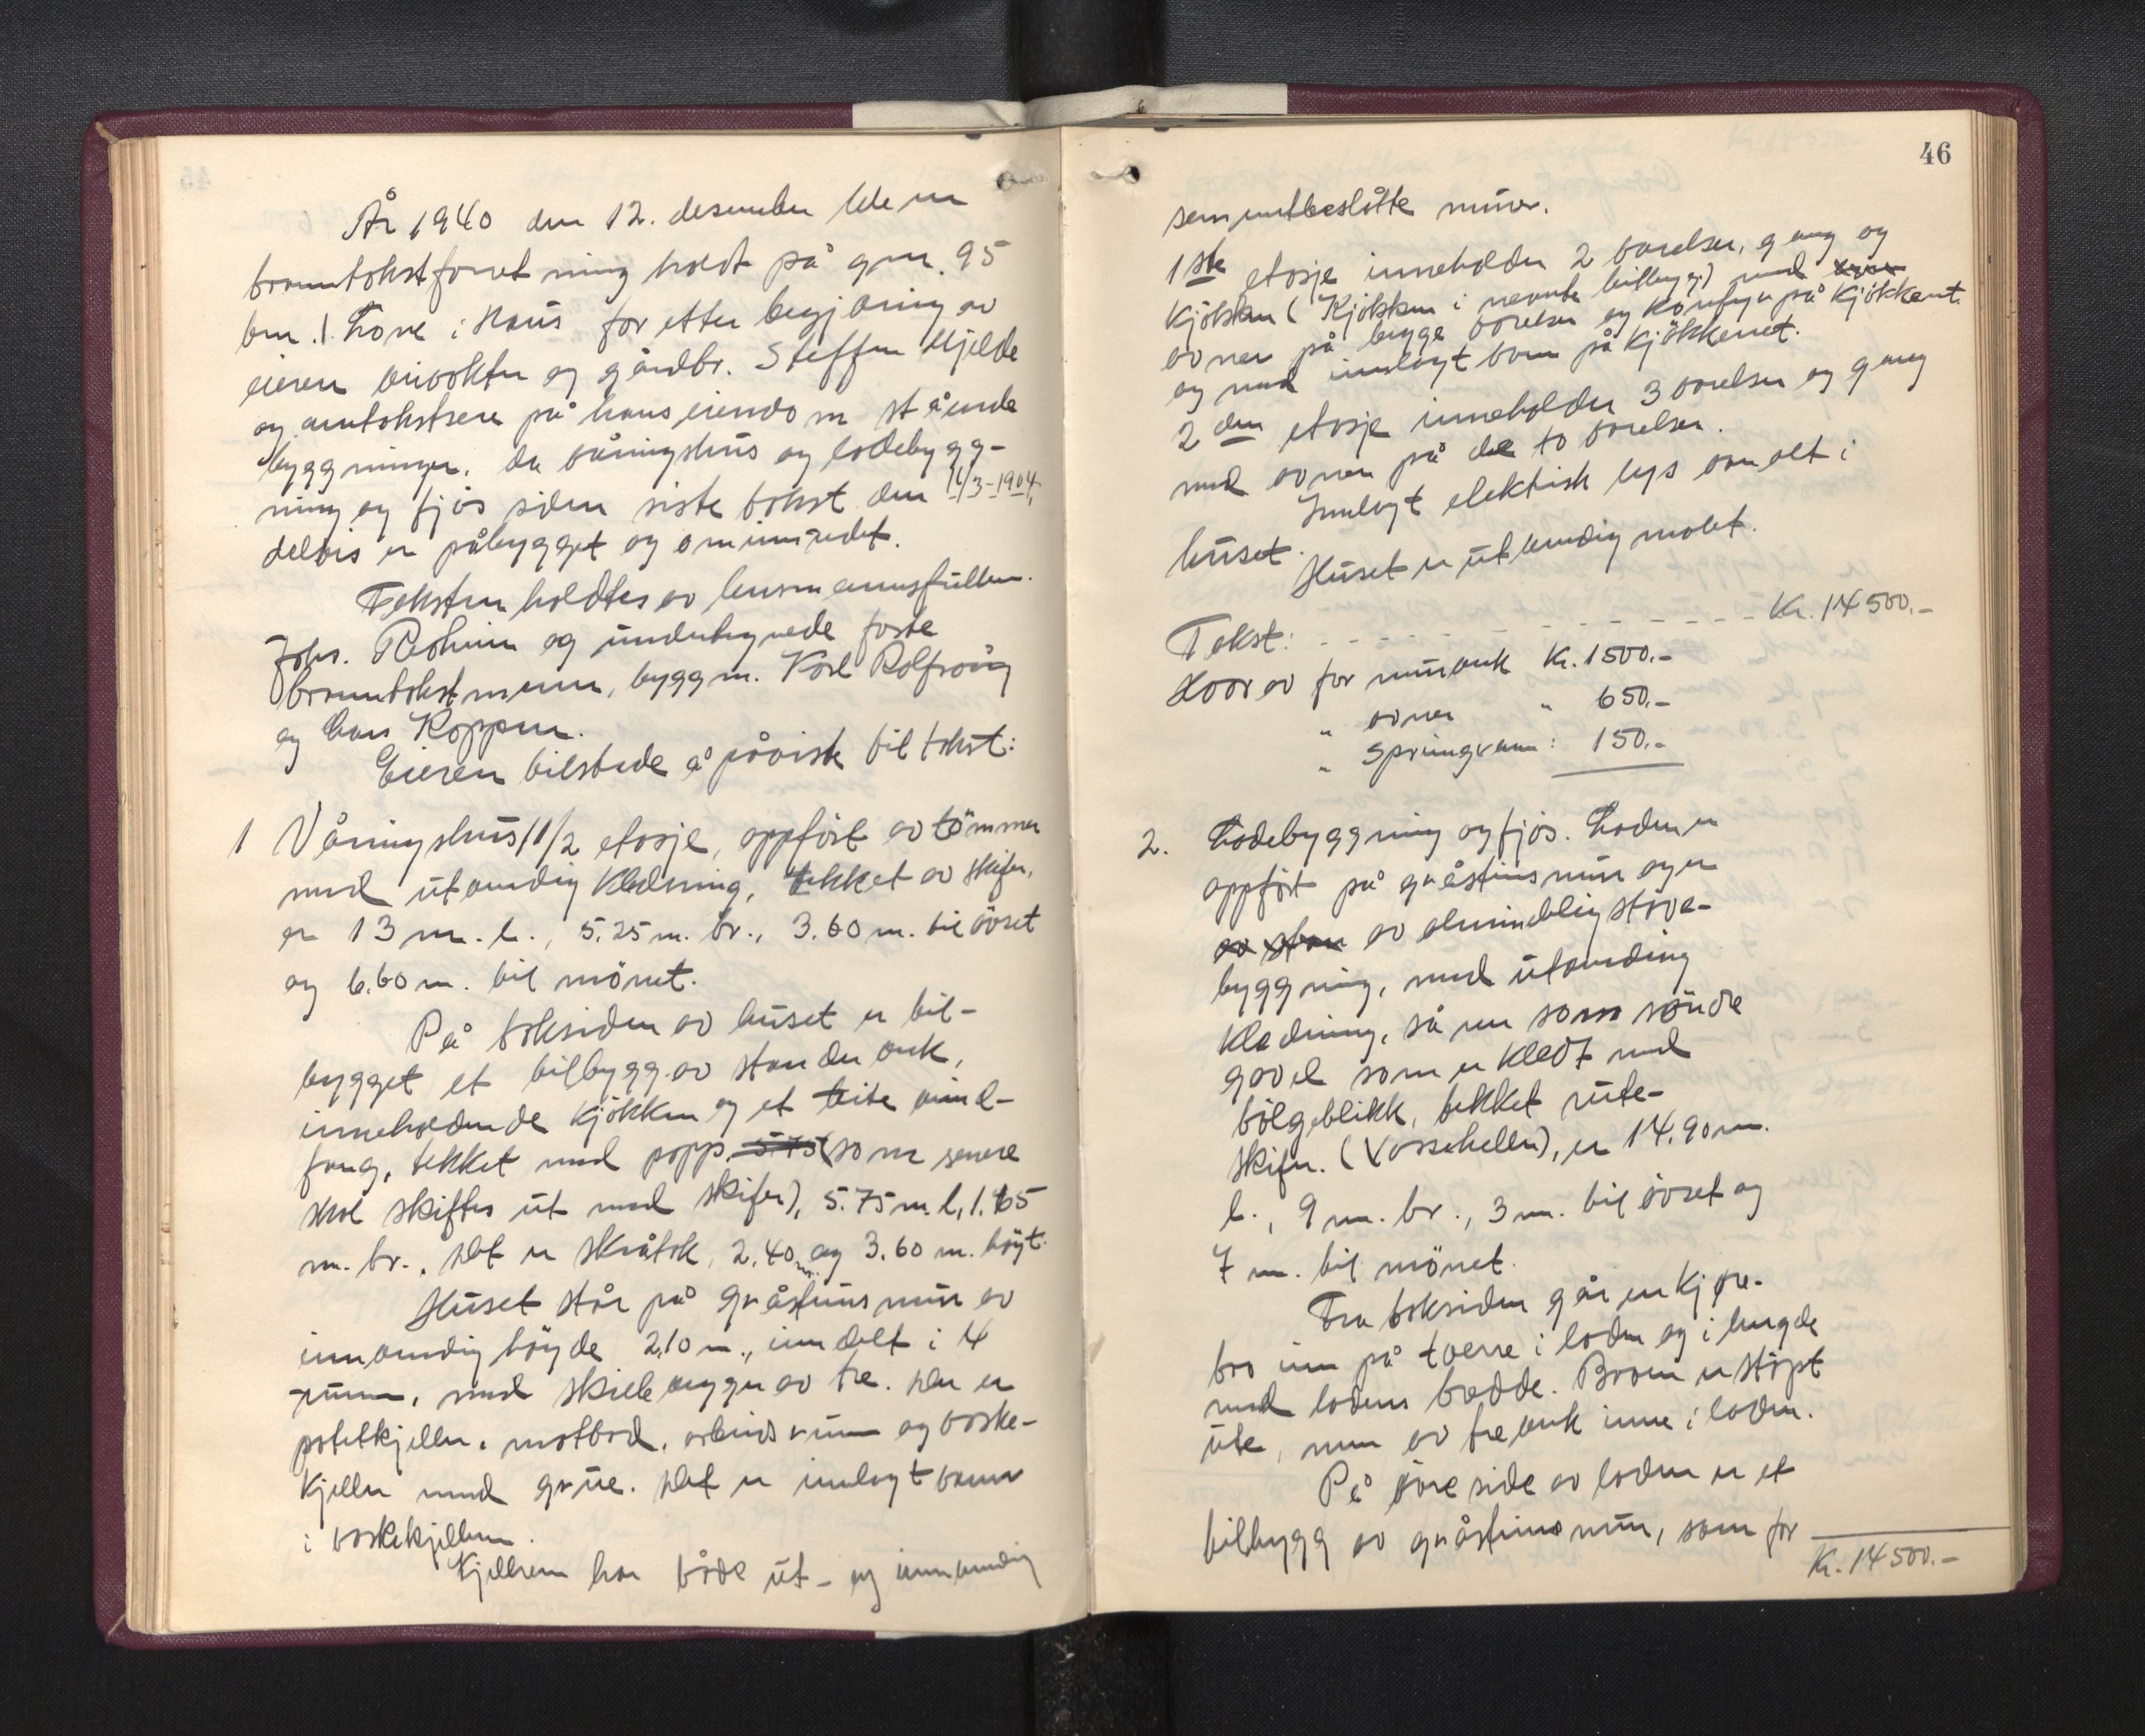 År 1940 den 12. desember ble en
branntakstforretning holdt på gnr. 95
bnr. 1. Lone i Haus for etter begjæring av
eieren veivokter og gårdbr. Steffen Mjelde
og omtaksere på hans eiendom stående
byggninger, da våningshus og lodebygg-
ning og fjøs siden siste takst den 11/3-1904,
delvis er påbygget og ominnredet.
Taksten holdtes av lensmannsfullm.
Johs. Redheim og undertegnede faste
branntakstmenn, byggm. Karl Rolfsvåg
og Lars Koppen.
Eieren tilstede å påviste til takst:
1 Våningshus, 1 1/2 etasje, oppført av tömmer
med utvendig kledning, tekket av skifer,
er 13 m. l., 5.25 m. br., 3.60 m. til övset
og 6.60 m. til mönet.
På baksiden av huset er til-
bygget et tilbygg av stenderverk,
inneholdende kjökken og et lite vind-
fang, tekket med papp 5.75 (som senere
skal skiftes ut med skifer), 5.75 m. l, 1.65
m. br., Det er skråtak, 2.40 m. og 3.60 m. höyt.
Huset står på gråstensmur av
innvendig höyde 2,10 m., inndelt i 4
rum, med skillevegger av tre. Der er
potetkjeller, matbod, arbeidsrum og vaske-
kjeller med grue. Det er innlagt vann
i vaskekjelleren.
Kjelleren har både ut- og innvendig
46
sementbeslåtte murer.
1ste etasje inneholder 2 værelser, gang og
kjökken (Kjökken i nevnte tilbygg) med
ovner på begge værelser og komfyr på kjökkent
og med innlagt vann på kjökkenet.
2den etasje inneholder 3 værelser og gang
med ovner på de to værelser.
Innlagt elektrisk lys overalt i
huset.
Huset er utvendig malet.
Takst: - - - - - - - - - - - - - - Kr. 14500.-
Hvorav for murverk Kr. 1500.-
" ovner " 650.-
" springvann: 150.-
2. Lodebyggning og fjös. Loden er
oppfört på gråstensmur og er
av stav av almindelig stöve-
byggning, med utvendig
kledning, så nær som söndre
gavel som er kledt med
bölgeblikk, tekket rute-
skifer. (Vossaheller), er 14.90 m.
l., 9 m. br., 3 m. til övset og
7 m. til mönet.
Fra baksiden går en kjøre-
bro inn på tverre i loden og i lengde
med lodens bredde. Broen er støpt
ute, men av treverk inne i loden.
På övre side av loden er et
tilbygg av gråstensmur, som for
Kr. 14500.-